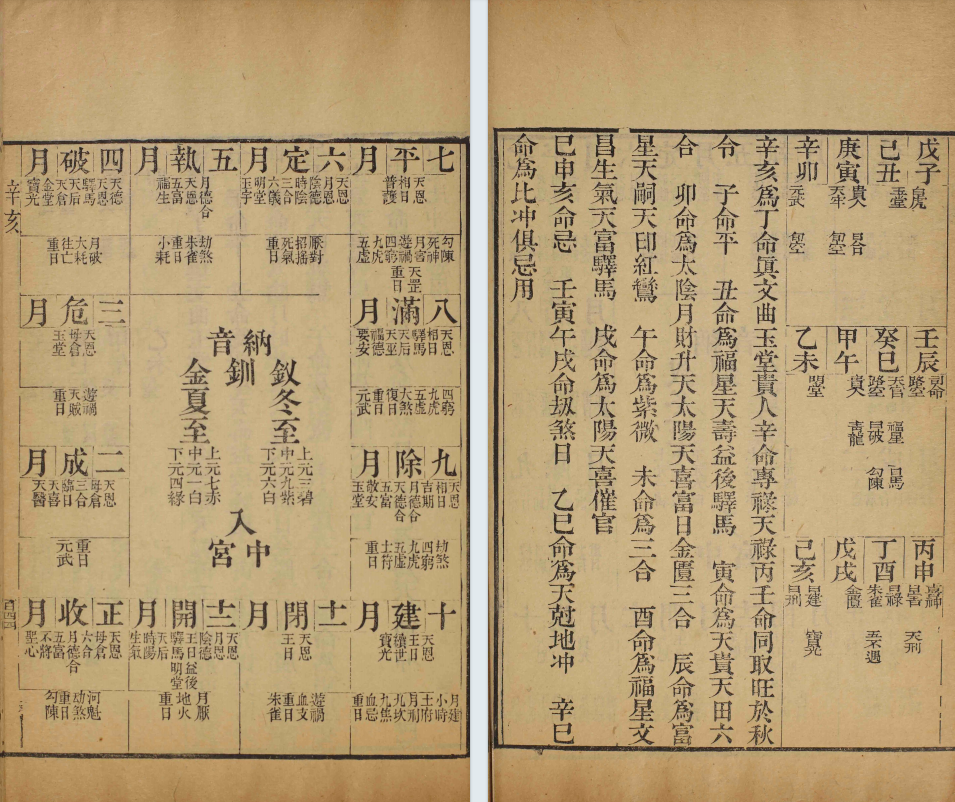 七平月
天恩
相日
普護
勾陳
死神
月害
遊禍
四窮
九虎
五虛
天罡
重日
六定月
天恩
月恩
陰德
時陰
三合
六儀
明堂
玉宇
厭對
招搖
死氣
重日
五執月
月德合
天恩
五富
福生
劫煞
朱雀
重日
小耗
四破月
天德
天恩
驛馬
天后
天倉
金堂
寶光
月破
大耗
往亡
重日
辛亥
八滿月
天恩
相日
驛馬
天后
天巫
福德
要安
四窮
九虎
五虛
大煞
復日
重日
元武
納音
釵釧金
冬至
上元三碧
中元九紫
下元六白
夏至
上元七赤
中元一白
下元四綠
入中宮
三危月
天恩
母倉
玉堂
遊禍
天賊
重日
九除月
天恩
相日
吉期
月德合
天德合
五富
敬安
玉堂
劫煞
四窮
九虎
五虛
土符
重日
二成月
天恩
母倉
三合
臨日
天喜
天醫
重日
元武
十建月
天恩
王日
續世
寶光
月建
小時
土府
月刑
九坎
九焦
血忌
重日
十一閉月
天恩
王日
遊禍
血支
重日
朱雀
十二開月
天恩
月恩
陰德
王日
驛馬
天后
時陽
生氣
益後
明堂
月厭
地火
重日
正收月
天恩
母倉
六合
月德合
五富
不將
聖心
河魁
劫煞
重日
勾陳
百四四
戊子
白虎
己丑
玉堂
庚寅
貴人
天牢
日合
旬空
辛卯
元武
旬空
壬辰
司命
路空
癸巳
天官
路空
福星
日馬
日破
勾陳
甲午
貴人
青龍
乙未
明堂
丙申
喜神
日害
天刑
丁酉
日祿
朱雀
五不遇
戊戌
金匱
己亥
日建
日刑
寶光
辛亥爲丁命眞文曲玉堂貴人辛命專祿天祿丙壬命同取旺於秋
令　子命平　丑命爲福星天壽益後驛馬　寅命爲天貴天田六
合　卯命爲太陰月財升天太陽天喜富日金匱三合　辰命爲富
星天嗣天印紅鸞　午命爲紫微　未命爲三合　酉命爲福星文
昌生氣天富驛馬　戌命爲太陽天喜催官
巳申亥命忌　壬寅午戌命刼煞日　乙巳命爲天尅地冲　辛巳
命爲比冲俱忌用